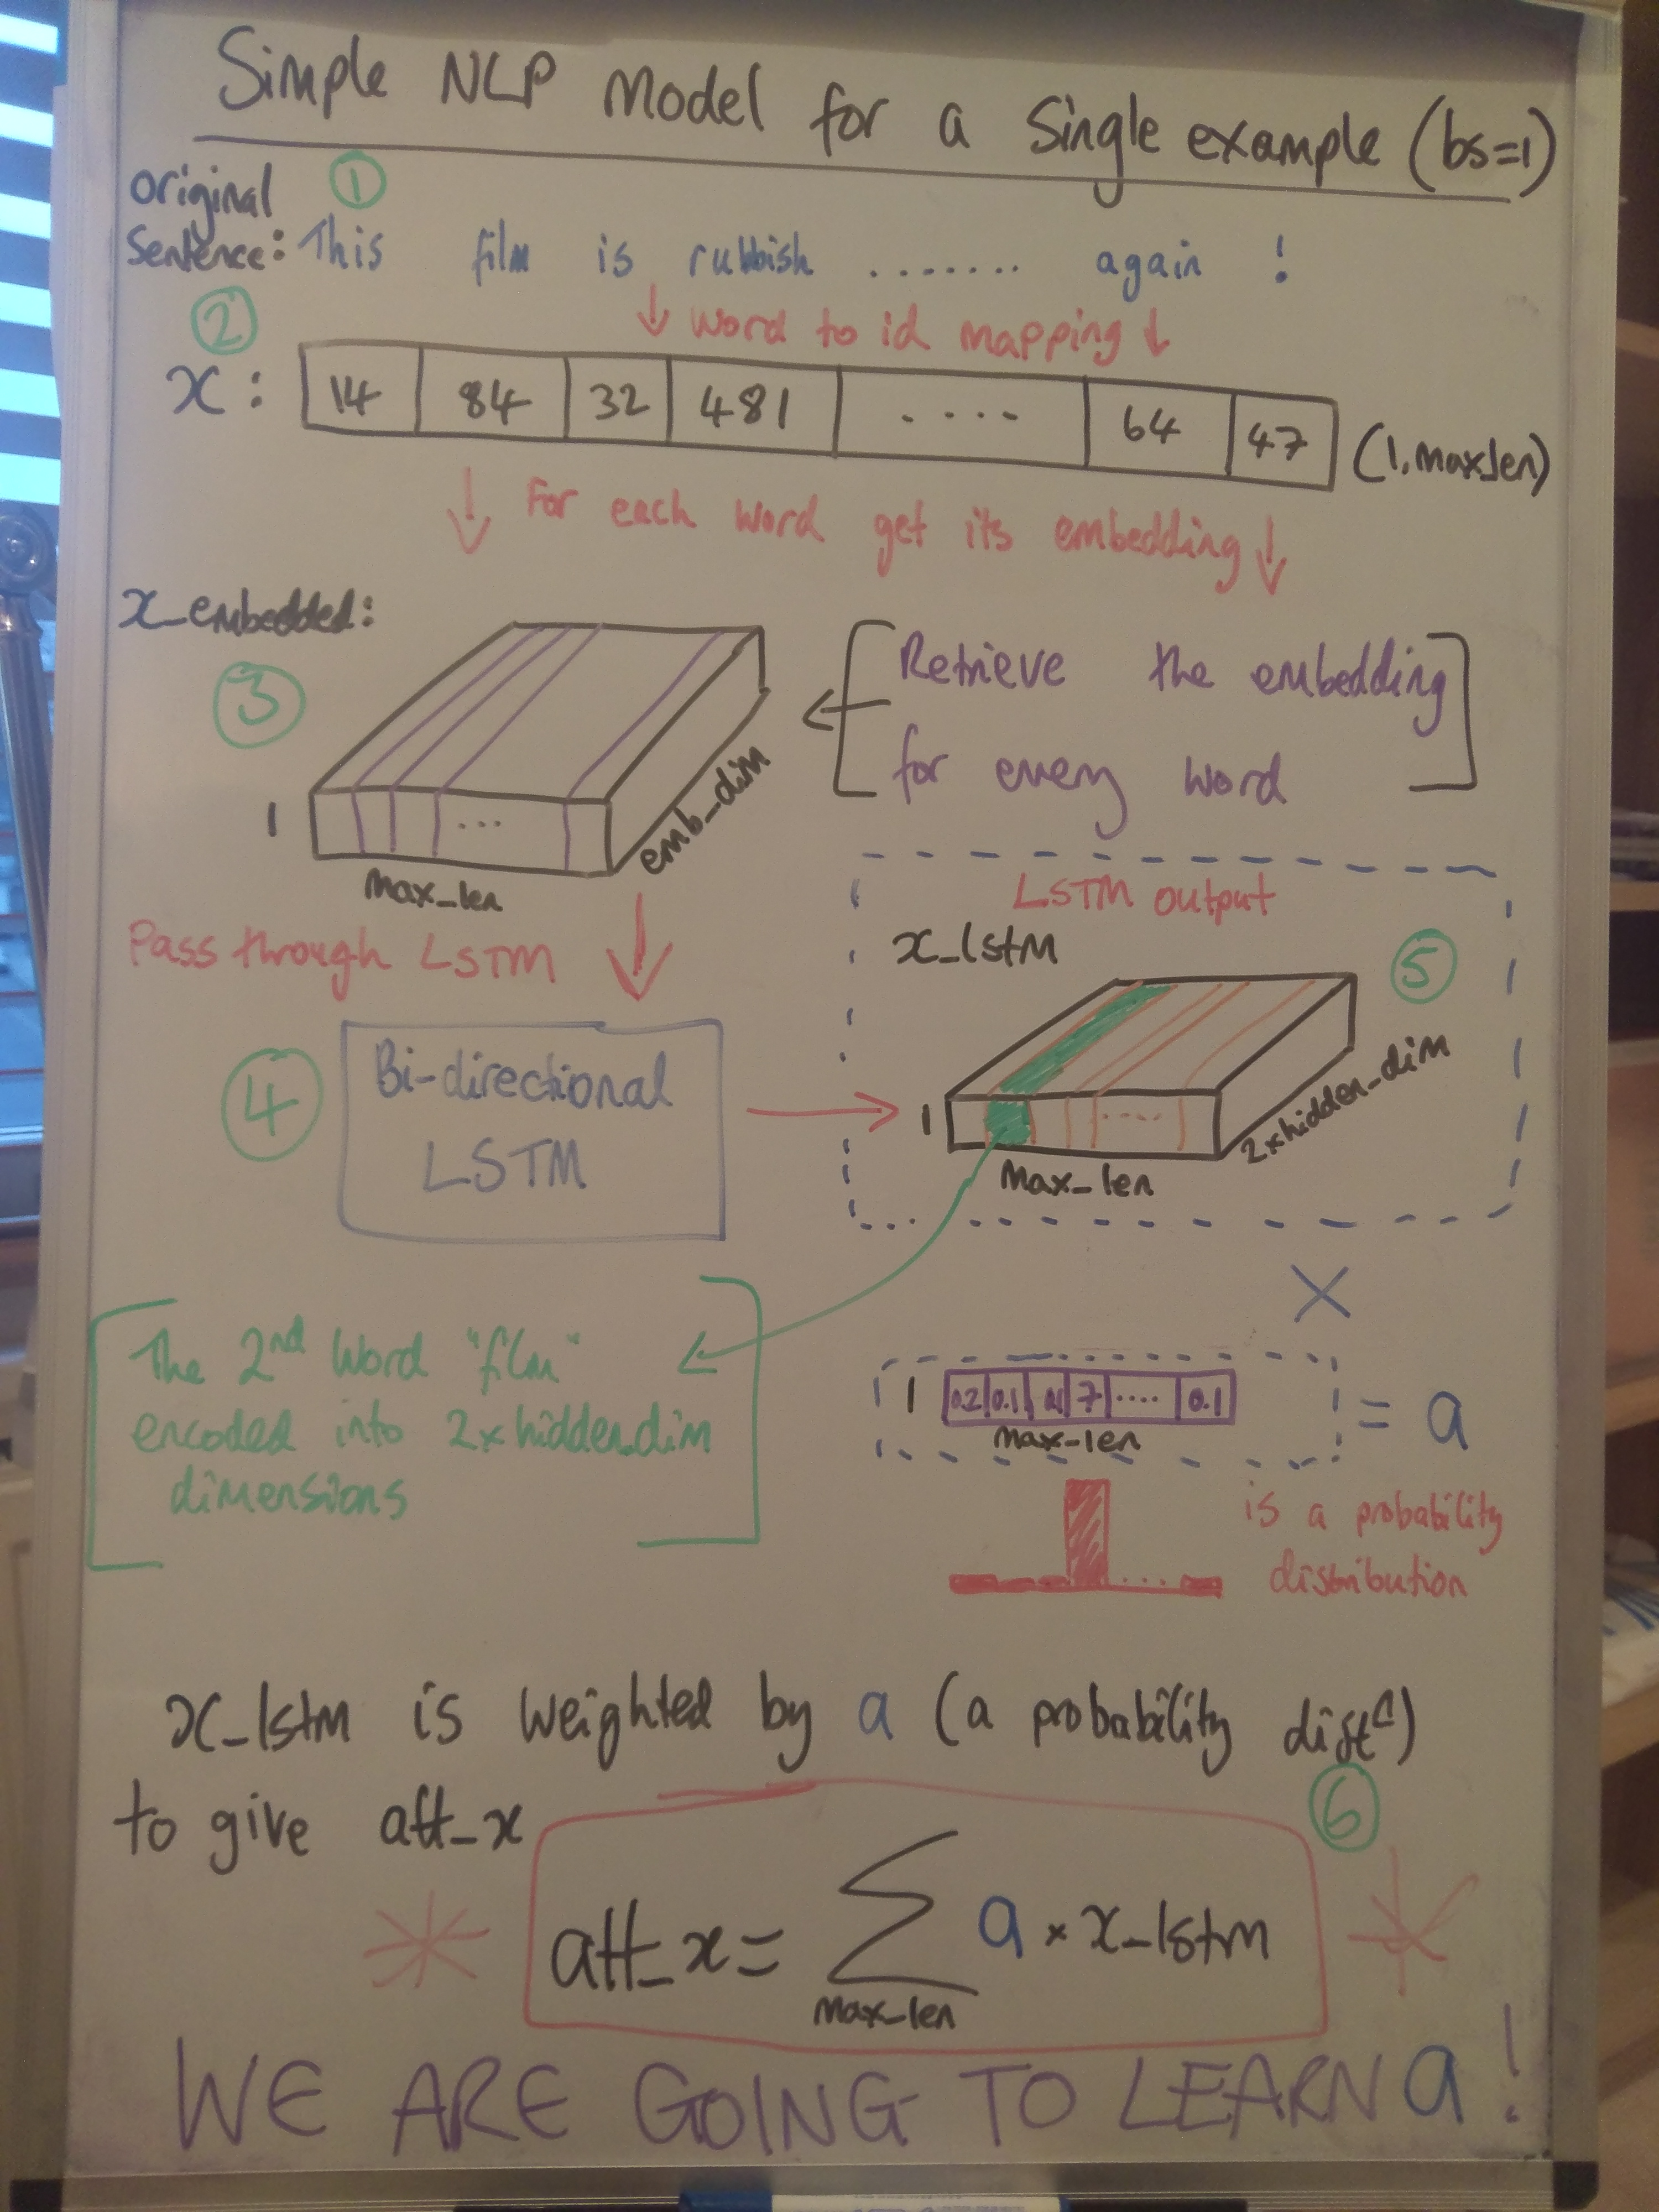 Simple NLP Model for a Single example (bs=1)
①
Original
Sentence: This film is rubbish ........ again !
②
↓ Word to id mapping ↓
x : 14 84 32 481 .... 64 47 (1, max_len)
↓ For each word get its embedding ↓
x_embedded:
③
Retrieve the embedding
for every word
1
...
max_len
emb_dim
Pass through LSTM
LSTM output
x_lstm
⑤
④
Bi-directional
LSTM
1
....
max_len
2xhidden_dim
×
The 2nd Word "film"
encoded into 2xhidden_dim
dimensions
1 0.2 0.1 7 .... 0.1 = a
max-len
...
is a probability
distribution
x_lstm is weighted by a (a probability distⁿ)
to give att_x
⑥
* att_x = ∑ a × x_lstm *
max_len
WE ARE GOING TO LEARN a!